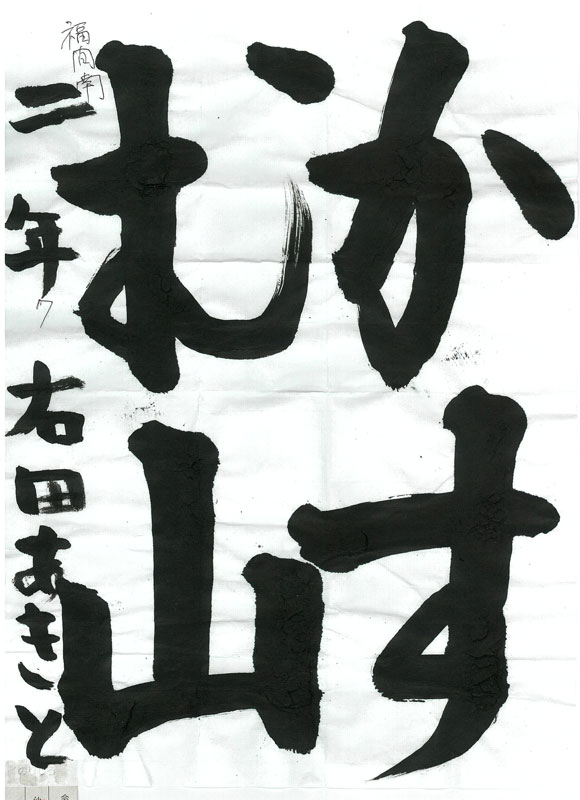 かす
む山
福間南
二年 右田あきと